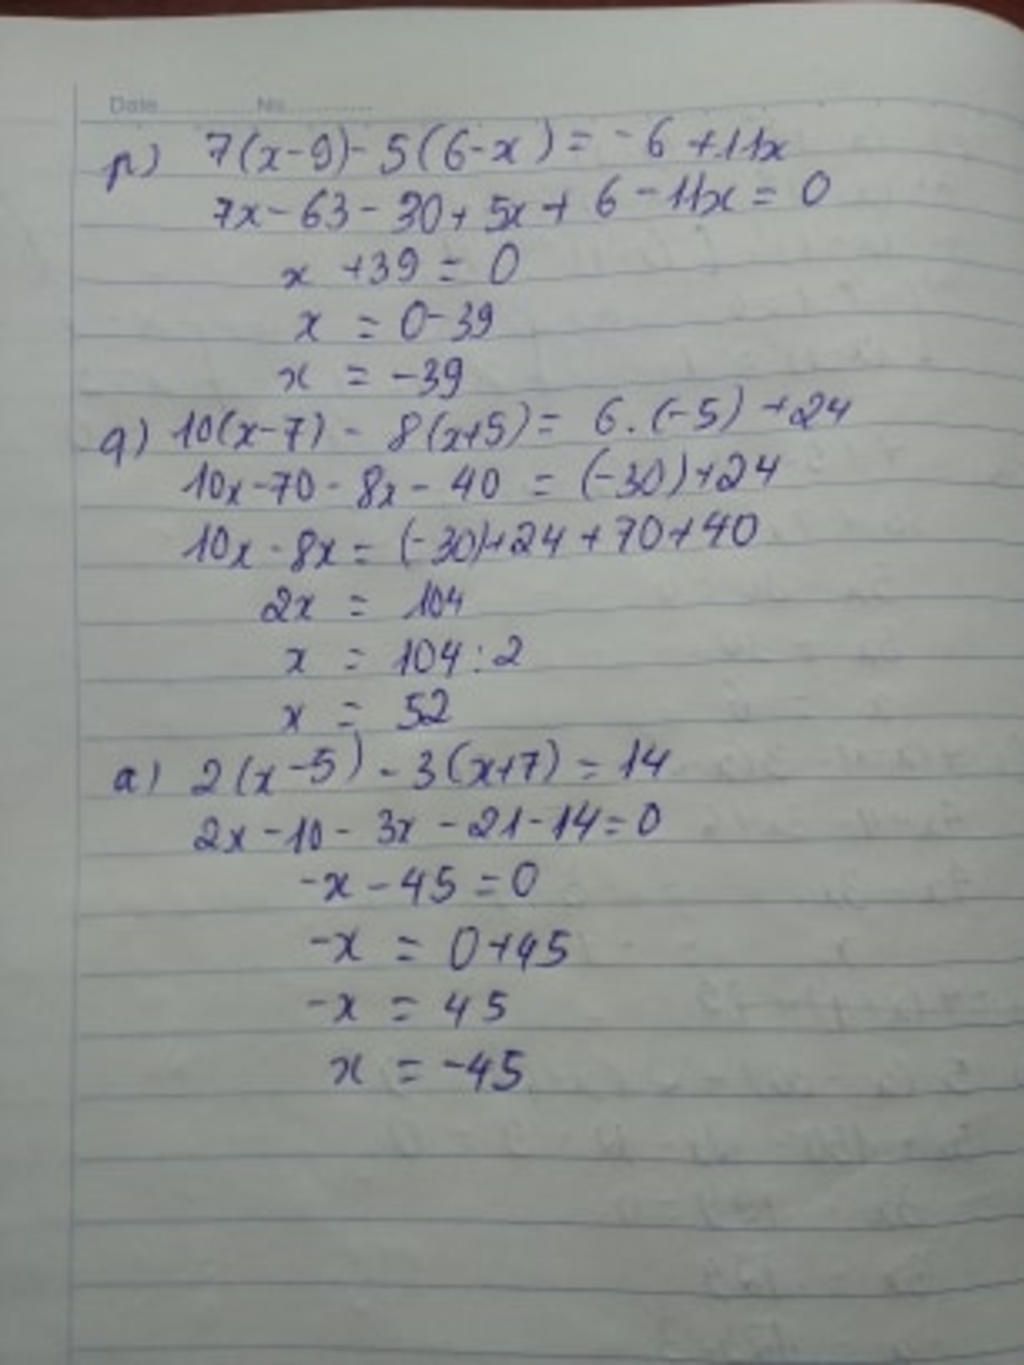 Date............No............
p) 7(x-9)-5(6-x)=-6+11x
7x-63-30+5x+6-11x=0
x+39=0
x=0-39
x=-39
q) 10(x-7)-8(x+5)=6.(-5)+24
10x-70-8x-40=(-30)+24
10x-8x=(-30)+24+70+40
2x=104
x=104:2
x=52
a) 2(x-5)-3(x+7)=14
2x-10-3x-21-14=0
-x-45=0
-x=0+45
-x=45
x=-45